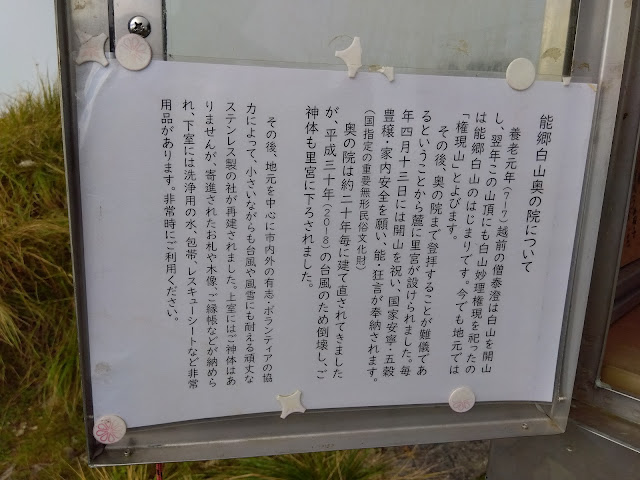 能郷白山奥の院について
養老元年(717)越前の僧泰澄は白山を開山
し、翌年この山頂にも白山妙理権現を祀ったの
は能郷白山のはじまりです。今でも地元では
「権現山」とよびます。
その後、奥の院まで登拝することが難儀であ
るということから麓に里宮が設けられました。毎
年四月十三日には開山を祝い、国家安寧・五穀
豊穣・家内安全を願い、能・狂言が奉納されます。
(国指定の重要無形民俗文化財)
奥の院は約二十年毎に建て直されてきました
が、平成三十年(2018)の台風のため倒壊し、ご
神体も里宮に下ろされました。
その後、地元を中心に市内外の有志・ボランティアの協
力によって、小さいながらも台風や風雪にも耐える頑丈な
ステンレス製の社が再建されました。上室にはご神体はあ
りませんが、寄進されたお札や木像、ご縁帳などが納めら
れ、下室には洗浄用の水、包帯、レスキューシートなど非常
用品があります。非常時にご利用ください。